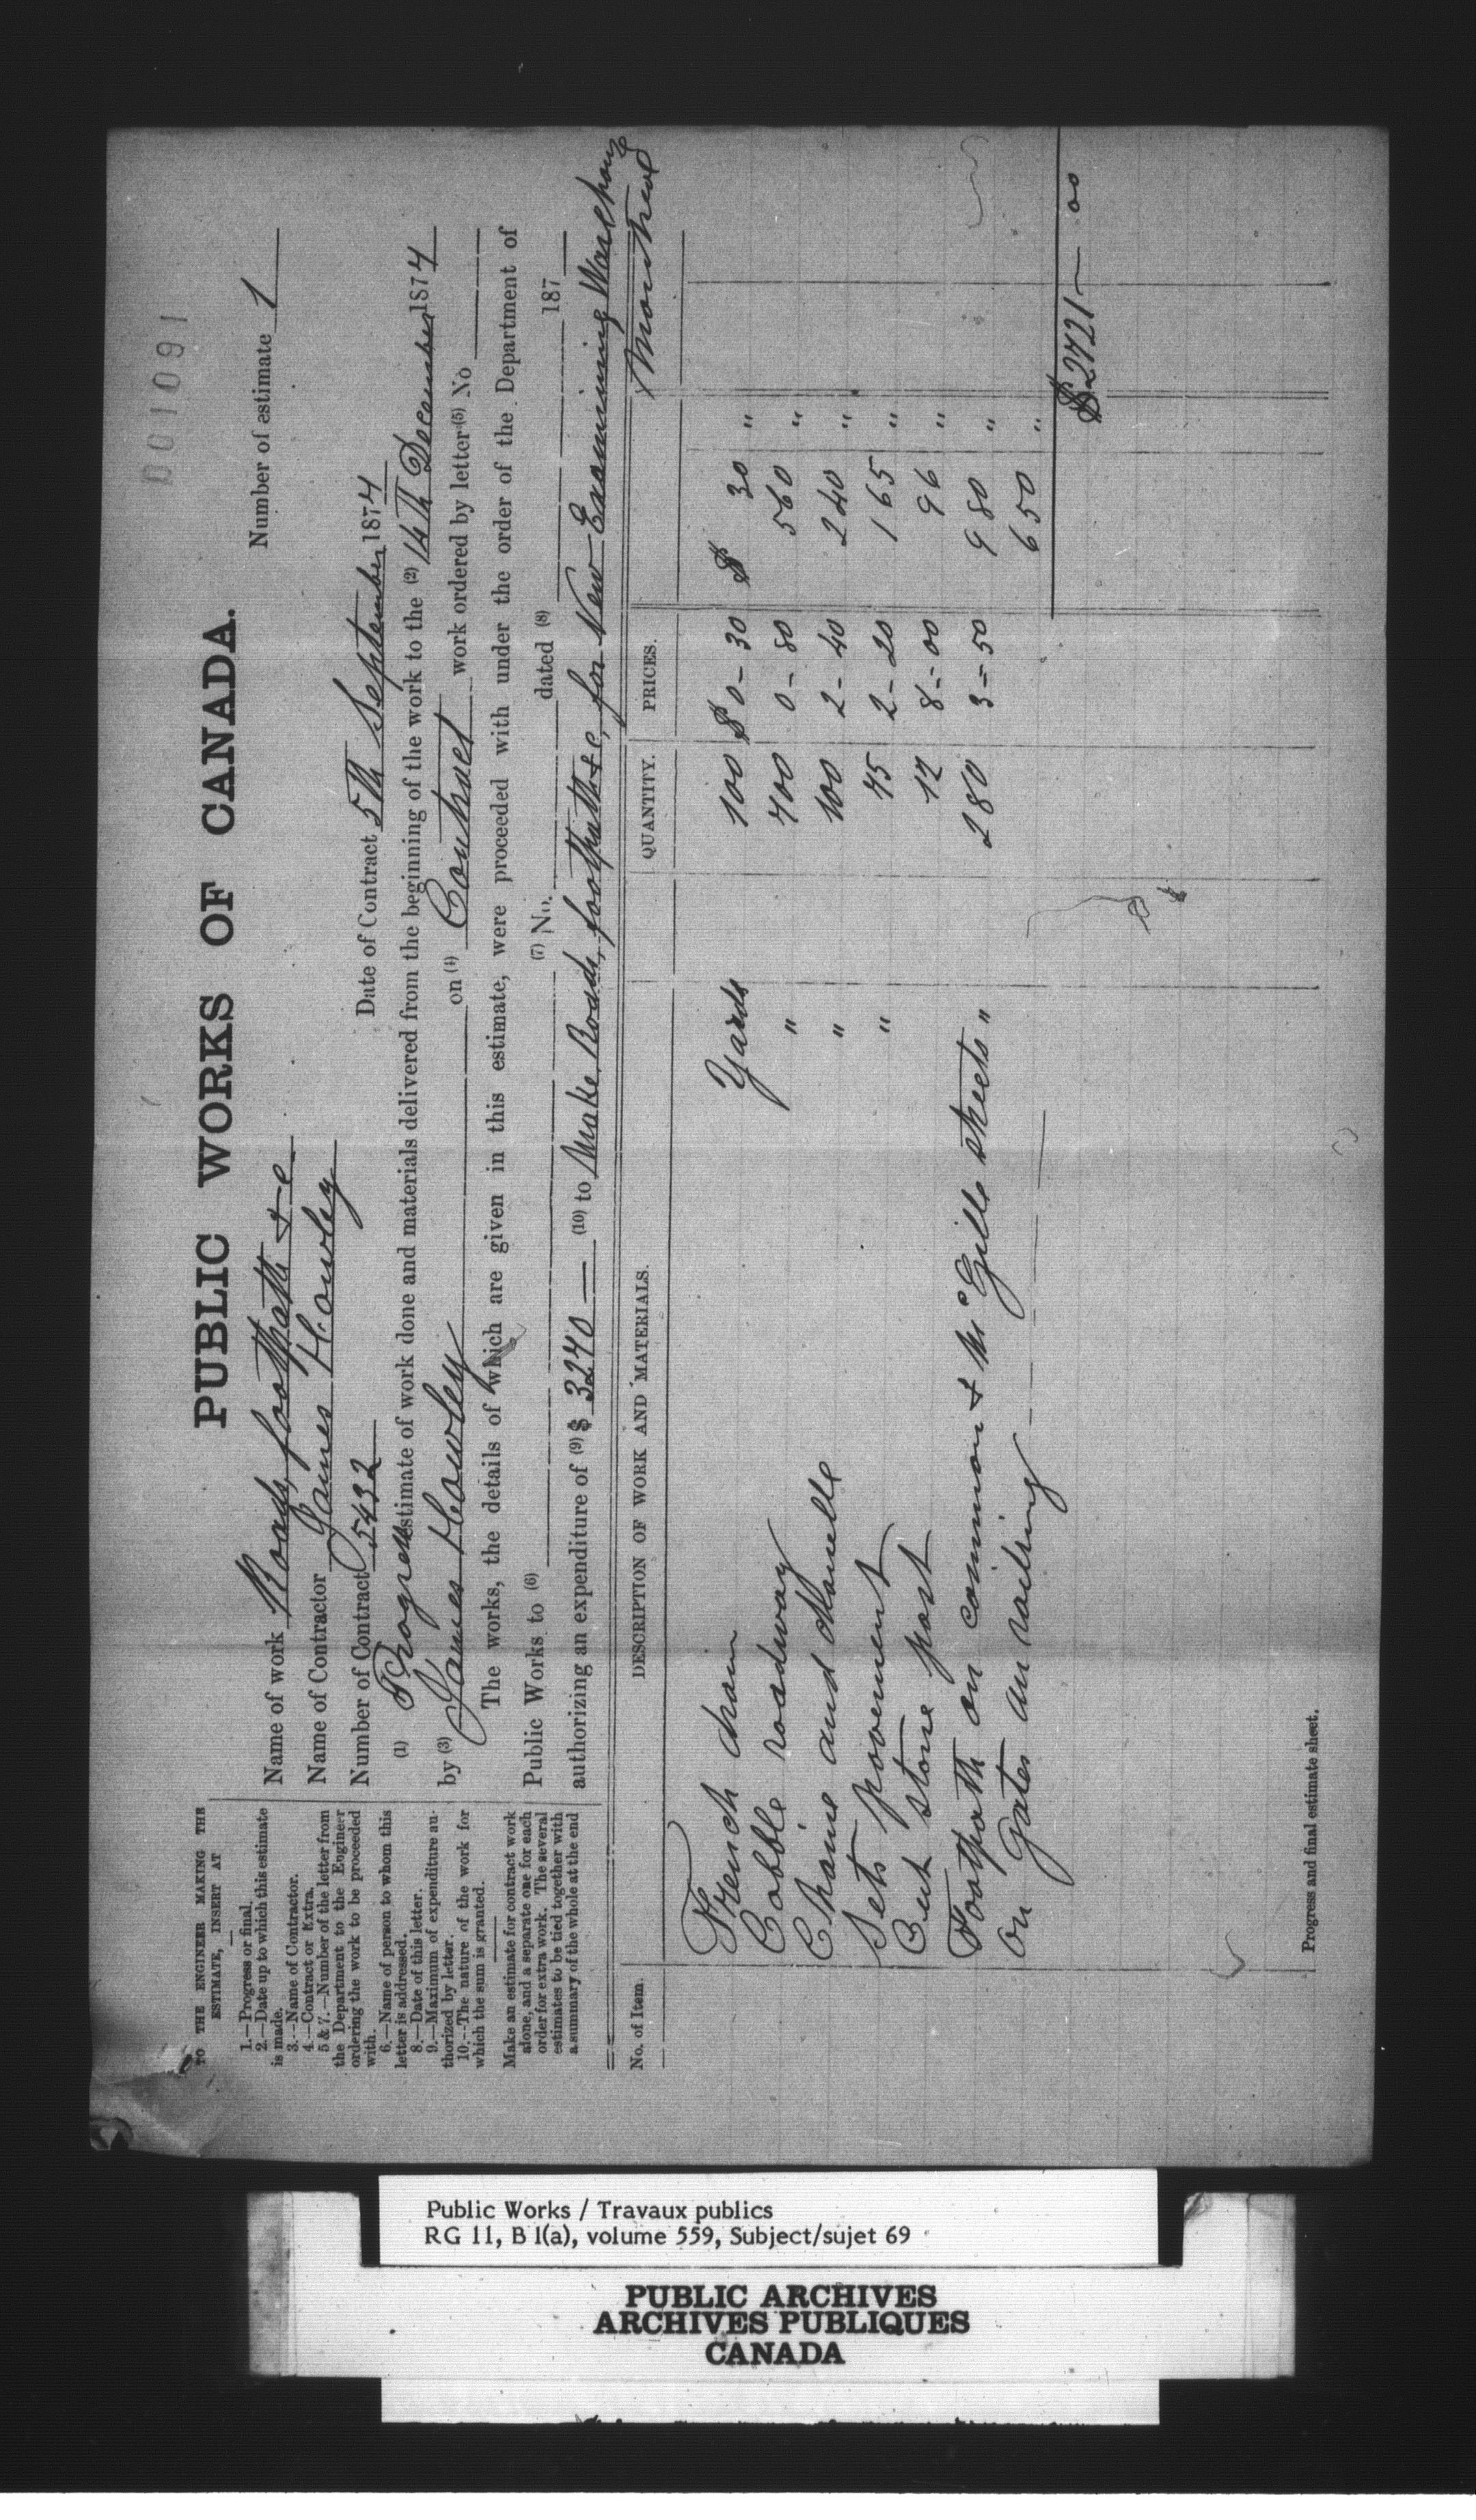 001091
PUBLIC WORKS OF CANADA.
TO THE ENGINEER MAKING THE
ESTIMATE, INSERT AT
1.—Progress or final.
2.—Date up to which this estimate
is made.
3.—Name of Contractor.
4.—Contract or Extra.
5 & 7.—Number of the letter from
the Department to the Engineer
ordering the work to be proceeded
with.
6.—Name of person to whom this
letter is addressed.
8.—Date of this letter.
9.—Maximum of expenditure au-
thorized by letter.
10.—The nature of the work for
which the sum is granted.
Make an estimate for contract work
alone, and a separate one for each
order for extra work. The several
estimates to be tied together with
a summary of the whole at the end
Name of work Roads, footpath & c Number of estimate 1
Name of Contractor James Howley
Number of Contract 5432 Date of Contract 5th September 1874
(1) Progress estimate of work done and materials delivered from the beginning of the work to the (2) 14th December 1874
by (3) James Howley on (4) Contract work ordered by letter (5) No
The works, the details of which are given in this estimate, were proceeded with under the order of the Department of
Public Works to (6) (7) No. dated (8) 187
authorizing an expenditure of (9) $ 3240 — (10) to Make Roads, footpath &c, for New Examining Warehouse
Montreal
No. of Item. DESCRIPTION OF WORK AND MATERIALS. QUANTITY. PRICES.
French drain Yards 100 $0-30 $ 30 "
Cobble roadway " 700 0-80 560 "
Chane and Chanelle " 100 2-40 240 "
Sets pavement " 75 2-20 165 "
Cut stone post 12 8=00 96 "
Footpath on common & McGille streets " 280 3=50 980 "
On Gates an railing 650 "
$2721— 00
Progress and final estimate sheet.
Public Works / Travaux publics
RG 11, B 1(a), volume 559, Subject/sujet 69
PUBLIC ARCHIVES
ARCHIVES PUBLIQUES
CANADA